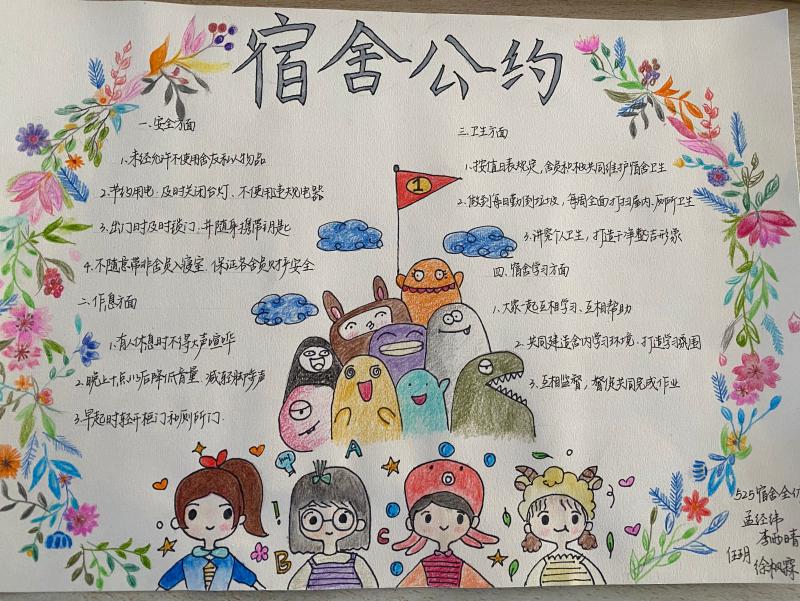 宿舍公约
一、安全方面
1.未经允许不使用舍友私人物品
2.节约用电,及时关闭台灯、不使用违规电器
3.出门时及时锁门,并随身携带钥匙
4.不随意带非舍员入寝室,保证各舍员财产安全
二、作息方面
1.有人休息时不得大声喧哗
2.晚上十点以后降低音量,减轻脚步声
3.早起时轻开柜门和厕所门
三、卫生方面
1.按值日表规定,舍员积极共同维护宿舍卫生
2.做到每日勤倒垃圾,每周全面打扫屋内、厕所卫生
3.讲究个人卫生,打造干净整洁形象
四、宿舍学习方面
1.大家一起互相学习、互相帮助
2.共同建造舍内学习环境,打造学习氛围
3.互相监督,督促共同完成作业
1
A
B
C
!
525宿舍全体
孟经纬
李 晴
任玥
徐枫霖